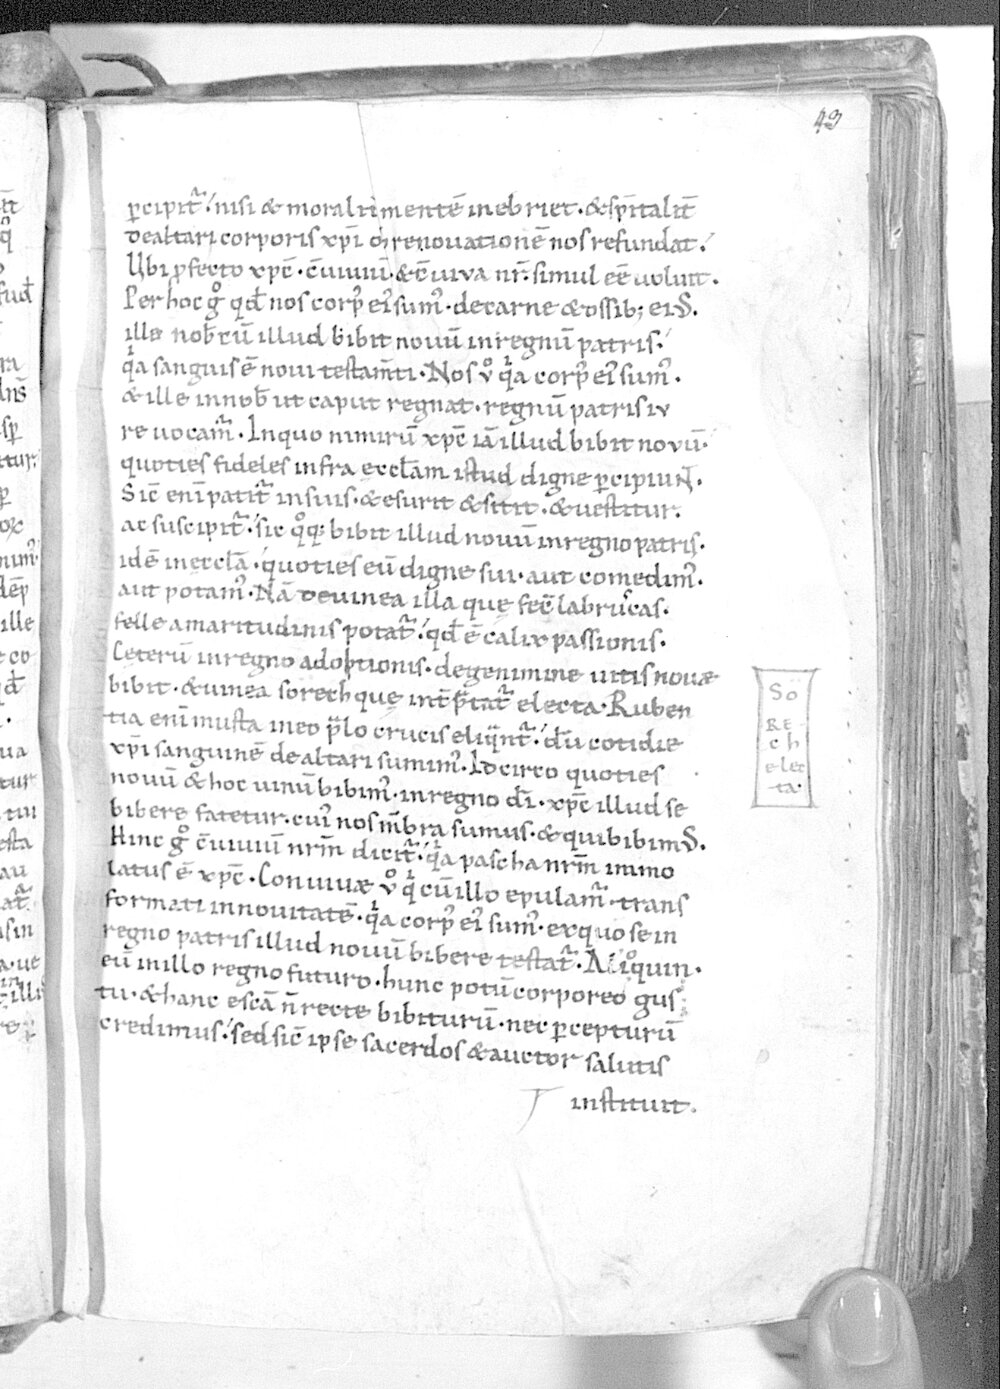 49
p̱cipit᷑. nisi & moraliť mentē inebriet. & sp̄italiť
de altari corporis xp̄i ī renouationē nos refundat.
Ubi p̱fecto xp̄c c̄uiuiū & c̄uiua nr̄ simul eē uoluit.
Per hoc g̊ qđ nos corp᷒ ei᷒ sum᷒. de carne & ossib; ei᷒đ.
ille nob̄cū illud bibit nouū in regnū patris.
qͣa sanguis ē noui testam̄ti. Nos ů qͣa corp᷒ ei᷒ sum᷒.
& ille in nob̄ ut caput regnat. regnū patris iu
re uocam᷒. In quo nimirū xp̄c iā illud bibit nouū.
quoties fideles infra eccl̄am istud digne p̱cipiunt.
Sic̄ enī patit᷑ in suis. & esurit & sitit. & uestitur.
ac suscipit᷑. sic q̊q; bibit illud nouū in regno patris.
idē in eccl̄a. quoties eū digne sui. aut comedim᷒.
aut potam᷒. Nā de uinea illa que fec̄ labruscas.
felle amaritudinis potat᷑. qđ ē calix passionis.
Ceterū in regno adoptionis. de genimine uitis nouæ
bibit. & uinea sorech que int̄p̄tat᷑ electa. Ruben
tia enī musta in eo p̄lo crucis eliqͣnt᷑. dū cotidie
xp̄i sanguinē de altari sumim᷒. Idcirco quoties
nouū & hoc uinū bibim᷒. in regno dī. xp̄c illud se
bibere fatetur. cui᷒ nos m̄bra sumus. & qui bibim᷒đ.
Hinc g̊ c̄uiuiū nrm̄ dicit᷑. qͣa pascha nrm̄ immo
latus ē xp̄c. Conuiuæ ů qͥ cū illo epulam᷑. trans
formati in nouitatē. qͣa corp᷒ ei᷒ sum᷒. ex quo se in
regno patris illud nouū bibere testat᷑. Alioquin.
eū in illo regno futuro. hunc potū corporeo gus
tu. & hanc escā n̄ recte bibiturū. nec p̱cepturū
credimus. sed sic̄ ipse sacerdos & auctor salutis
instituit.
So
RE
ch
elec
ta.